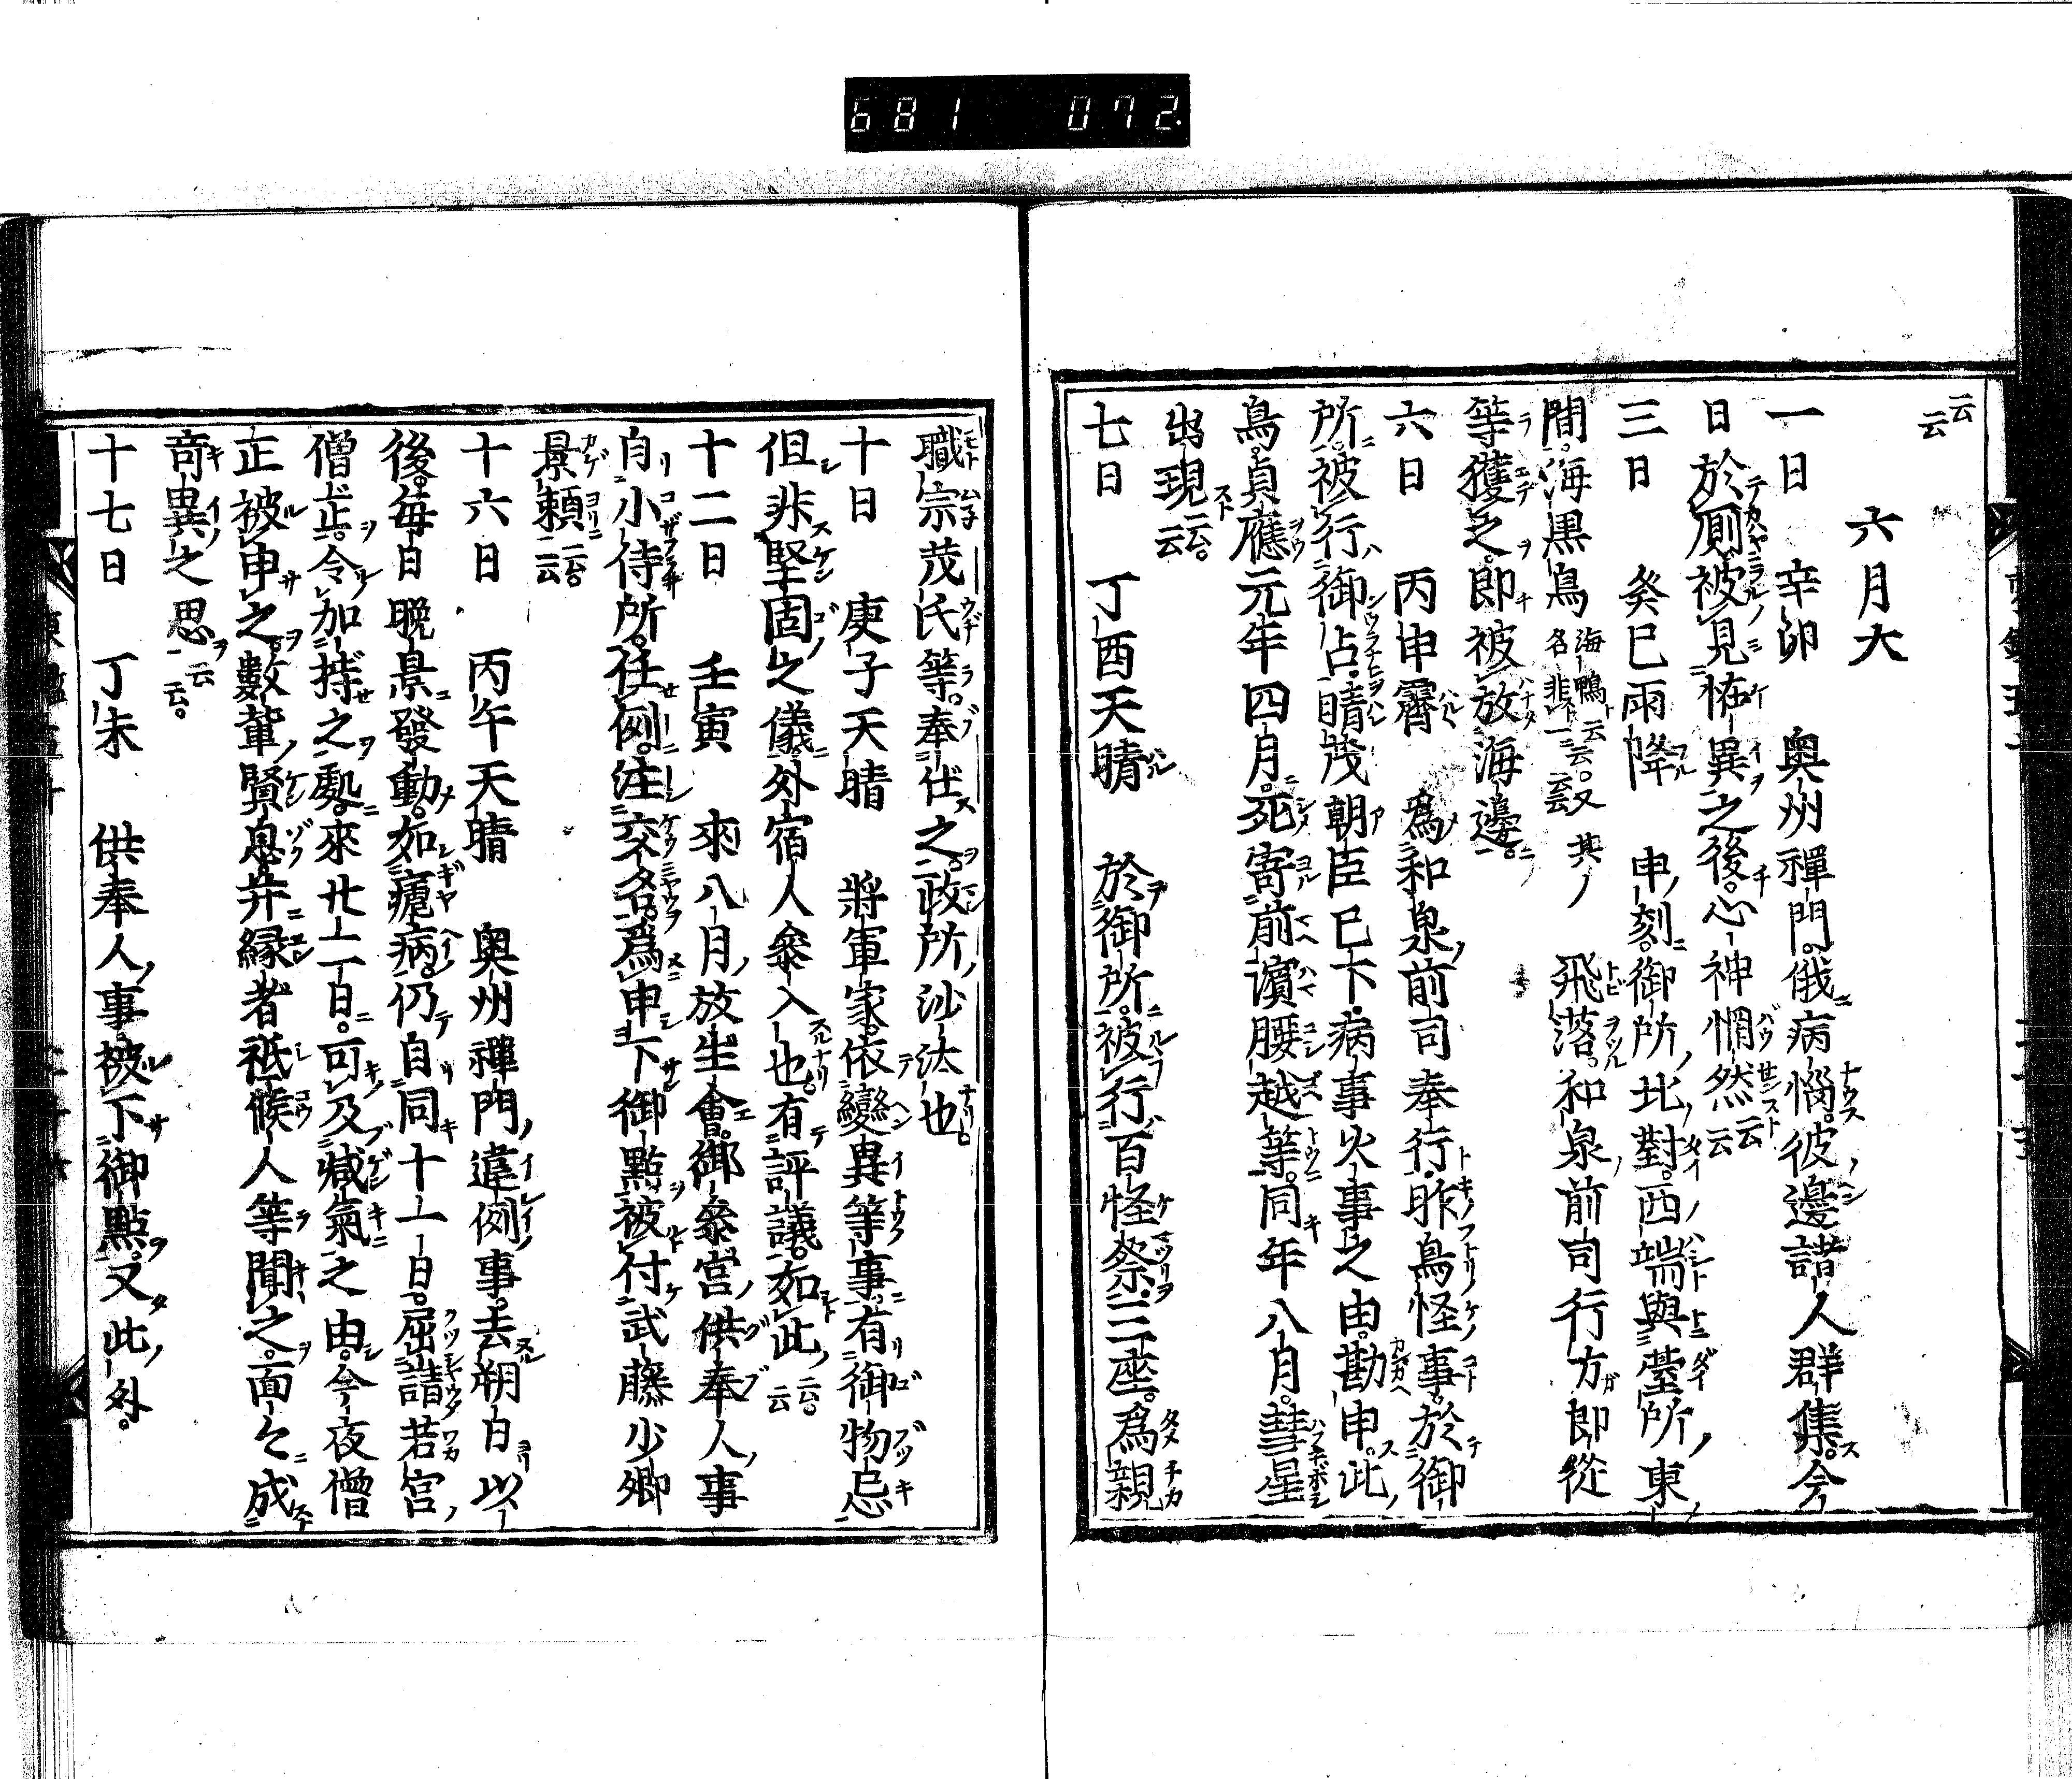 681 072.
云云
六月大
一日 辛卯 奥州禪門俄病惱。彼邊諸人群集。今
日於厠被見恠異之後。心神惘然云云
三日 癸巳雨降 申刻。御所北對。西端與臺所東
間。海黒鳥 海鴨ト云云。又其ノ名非一云云 飛落。和泉前司行方郎從
等獲之。即被放海邊。
六日 丙申霽 爲和泉前司奉行。昨鳥怪事。於御
所。被行御占。晴茂朝臣已下。病事火事之由。勘申。此
鳥。貞應元年四月。死寄前濱腰越等。同年八月。彗星
出現云云。
七日 丁酉天晴 於御所。被行百怪祭三座。爲親
職宗茂氏等。奉仕之。政所沙汰也。
十日 庚子天晴 將軍家。依變異等事。有御物忌
但非堅固之儀。外宿人參入也。有評議。如此云云。
十二日 壬寅 來八月放生會。御參宮供奉人事
自小侍所。任例。注交名。爲申下御點被付武藤少卿
景頼云云。
十六日 丙午天晴 奥州禪門違例事。去朔日以
後。毎日晩景發動。如瘧病。仍自同十一日。屈請若宮
僧正。令加持之處。來廿二日。可及減氣之由。今夜僧
正被申之。數輩賢息并縁者祗候人等聞之。面々成
奇異之思云云。
十七日 丁未 供奉人事被下御點。又此外。